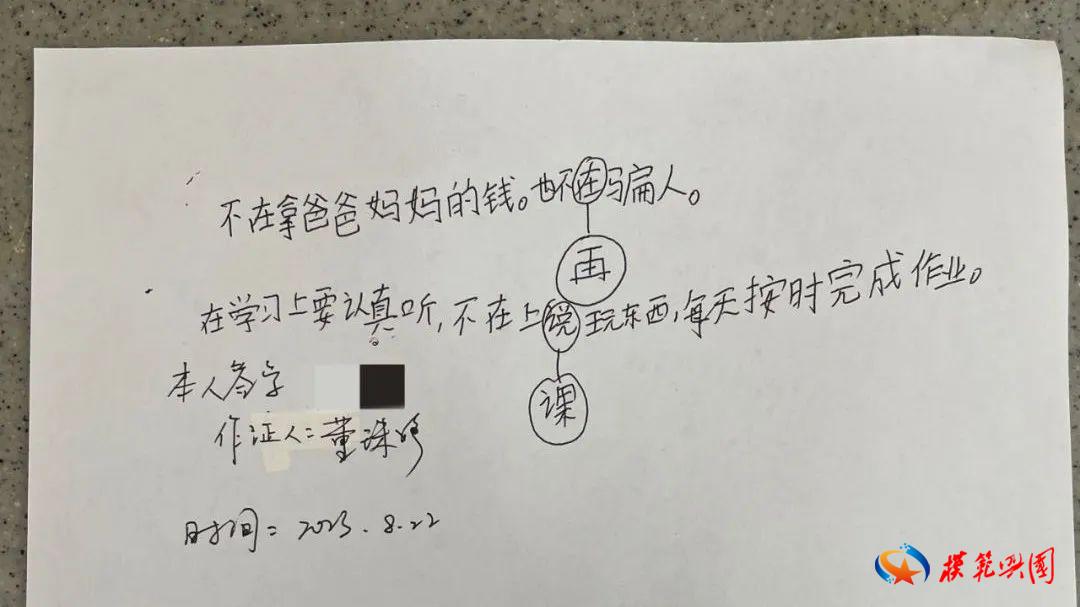 不在拿爸爸妈妈的钱。也不在骗人。
再
在学习上要认真听,不在上说玩东西,每天按时完成作业。
课
本人签字
作证人:董洙婷
时间:2023.8.22
模范兴国